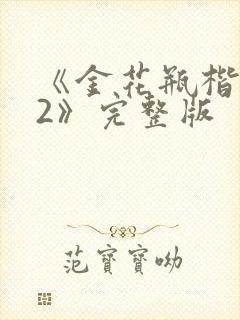 《金花瓶楷
2》完整版
范寶寶呦